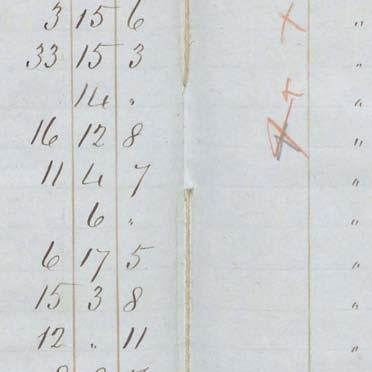 3 15 6 "
33 15 3 "
14 " "
16 12 8 "
11 4 7 "
6 " "
6 17 5 "
15 3 8 "
12 " 11 "